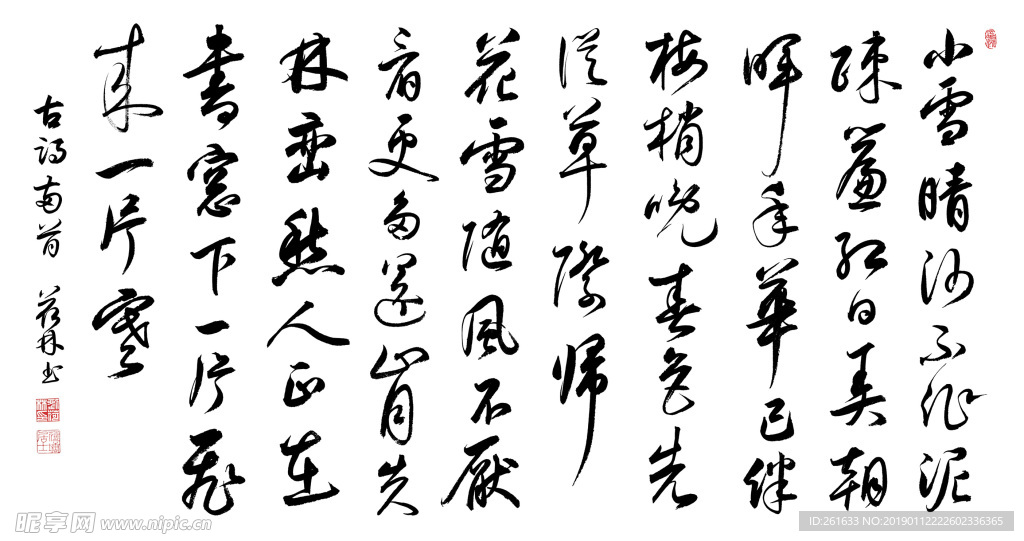 小雪晴沙不作泥
疎簾紅日弄朝
暉年華已伴
梅梢晚春色先
從草際歸
花雪隨風不厭
看更多還肯失
林巒愁人正在
書窓下一片飛
来一片寒
古詩两首 书
昵享网 www.nipic.cn
ID:261633 NO:20190112222602336365